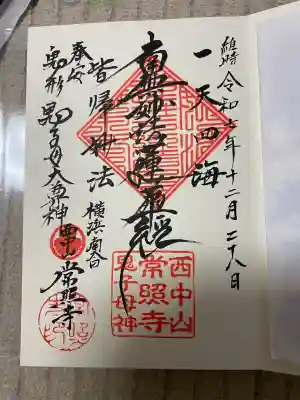 維時 令和七年十二月二十八日
一天四海
南無妙法蓮華経
皆帰妙法 横浜南谷
奉安
鬼形 鬼子母大善神 西中山 常照寺
西中山
常照寺
鬼子母神